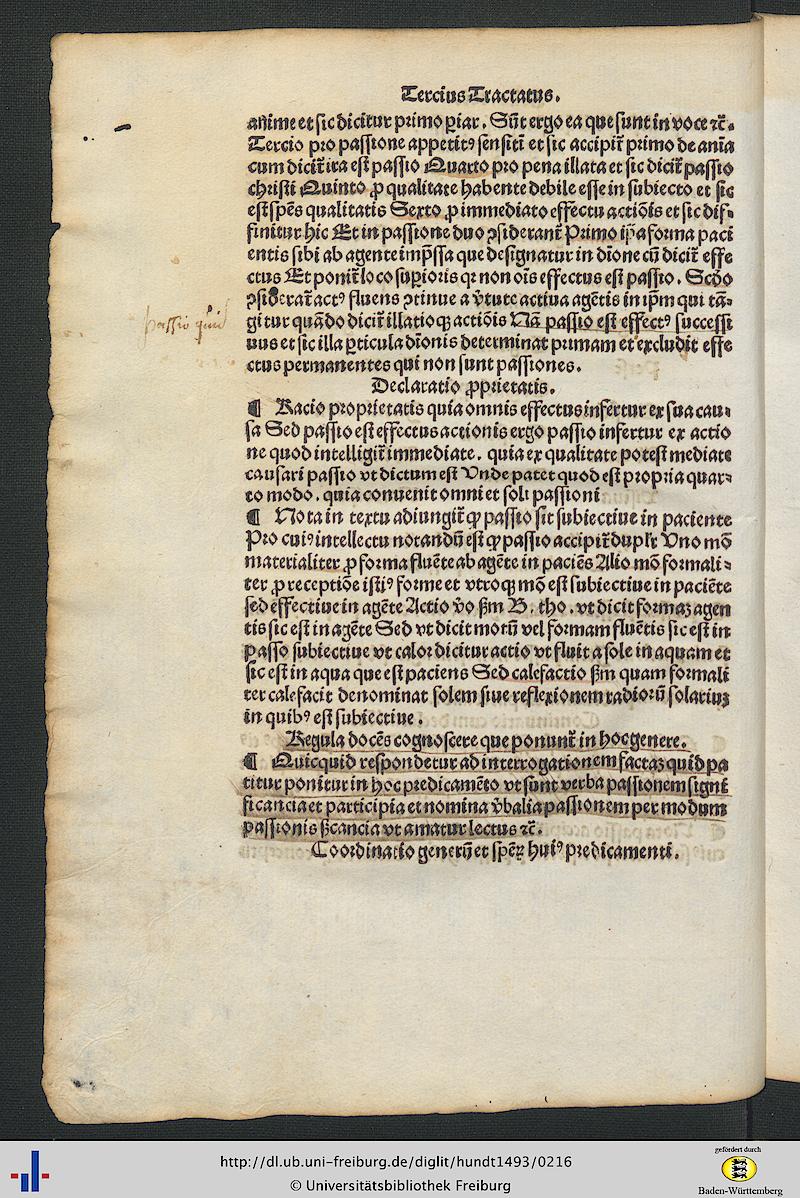 Tercius Tractatus.
anime et sic dicitur primo ꝑiar. Sūt ergo ea que sunt in voce ⁊c̄.
Tercio pro passione appetitꝰ sensiti et sic accipit᷑ primo de aīa
cum dicit᷑ ira est passio Quarto pro pena illata et sic dicit᷑ passio
christi Quinto ꝓ qualitate habente debile esse in subiecto et sic
est spēs qualitatis Sexto ꝓ immediato effectu actiōis et sic dif⸗
finitur hic Et in passione duo ꝯsiderant᷑ Primo ip̄a forma paci
entis sibi ab agente imp̄ssa que designatur in diōne cū dicit᷑ effe
ctus Et ponit᷑ loco suꝑioris qꝛ non oīs effectus est passio. Scđo
ꝯsiderat᷑ actꝰ fluens ꝯtinue a v̄tute actiua agētis in ip̄m qui tā⸗
gitur quādo dicit᷑ illatioqꝫ actiōis Nā passio est effectꝰ successi
uus et sic illa ꝑticula diōnis determinat primam et excludit effe
ctus permanentes qui non sunt passiones.
passio quid
Declaratio ꝓprietatis.
¶ Racio proprietatis quia omnis effectus infertur ex sua cau⸗
sa Sed passio est effectus actionis ergo passio infertur ex actio
ne quod intelligit᷑ immediate. quia ex qualitate potest mediate
causari passio vt dictum est Vnde patet quod est propria quar⸗
to modo. quia conuenit omni et soli passioni
¶ Nota in textu adiungit᷑ ꝙ passio sit subiectiue in paciente
Pro cuiꝰ intellectu notandū est ꝙ passio accipit᷑ duplr̄ Vno mō
materialiter ꝓ forma fluēte ab agēte in paciēs Alio mō formali⸗
ter ꝓ receptiōe istiꝰ forme et vtroqꝫ mō est subiectiue in paciēte
sed effectiue in agēte Actio v̄o ẜm B. tho. vt dicit formaꝫ agen
tis sic est in agēte Sed vt dicit motū vel formam fluētis sic est in
passo subiectiue vt calor dicitur actio vt fluit a sole in aquam et
sic est in aqua que est paciens Sed calefactio ẜm quam formali
ter calefacit denominat solem siue reflexionem radioꝝ solariuꝫ
in quibꝰ est subiectiue.
Regula docēs cognoscere que ponunt᷑ in hoc genere.
¶ Quicquid respondetur ad interrogationem factaꝫ quid pa
titur ponitur in hoc predicamēto vt sunt verba passionem signi
ficancia et participia et nomina v̄balia passionem per modum
passionis ẜcancia vt amatur lectus ⁊c̄.
Coordinatio generū et speꝝ huiꝰ predicamenti.
http://dl.ub.uni-freiburg.de/diglit/hundt1493/0216
© Universitätsbibliothek Freiburg
gefördert durch
Baden-Württemberg